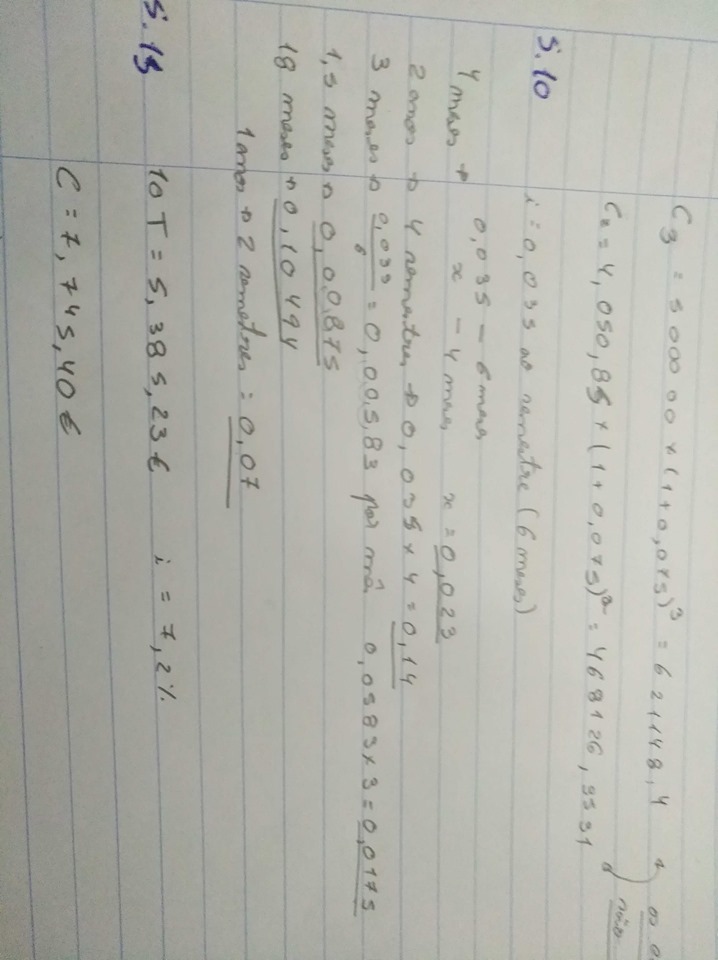 C3 = 500000 × (1+0,075)^3 = 621148,4
C2 = 4,050,85 × (1+0,075)^2 = 468126,3531
não
5.10 i = 0,035 ao semestre (6 meses)
0,035 – 6 meses
4 meses → x – 4 meses x = 0,023
2 anos → 4 semestres → 0,035 × 4 = 0,14
3 meses → 0,035/6 = 0,00583 por mês. 0,0583×3 = 0,0175
1,5 meses → 0,00875
18 meses → 0,10494
1 anos → 2 semetres = 0,07
5.13 10 T = 5,385,23 € i = 7,2%
C = 7,745,40 €